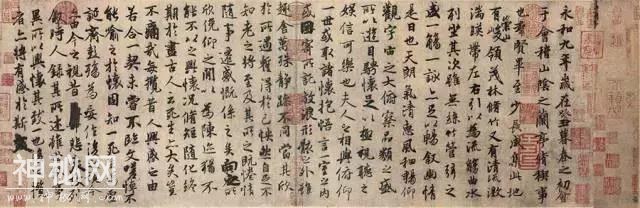 永和九年歲在癸丑暮春之初會
于會稽山陰之蘭亭脩稧事
也羣賢畢至少長咸集此地
有崇山峻領茂林脩竹又有清流激
湍暎帶左右引以為流觴曲水
列坐其次雖無絲竹管弦之
盛一觴一詠亦足以暢敘幽情
是日也天朗氣清惠風和暢仰
觀宇宙之大俯察品類之盛
所以遊目騁懷足以極視聽之
娛信可樂也夫人之相與俯仰
一世或取諸懷抱悟言一室之內
或因寄所託放浪形骸之外雖
趣舍萬殊靜躁不同當其欣
於所遇蹔得於己怏然自足不
知老之將至及其所之既惓情
隨事遷感慨係之矣向之所
欣俛仰之閒以為陳迹猶不
能不以之興懷況脩短隨化終
期於盡古人云死生亦大矣豈
不痛哉每攬昔人興感之由
若合一契未嘗不臨文嗟悼不
能喻之於懷固知一死
誕齊彭殤為妄作後
由今之視昔
敘時人錄其所述雖
異所以興懷其致一也後
者亦將有感於斯文
神秘网